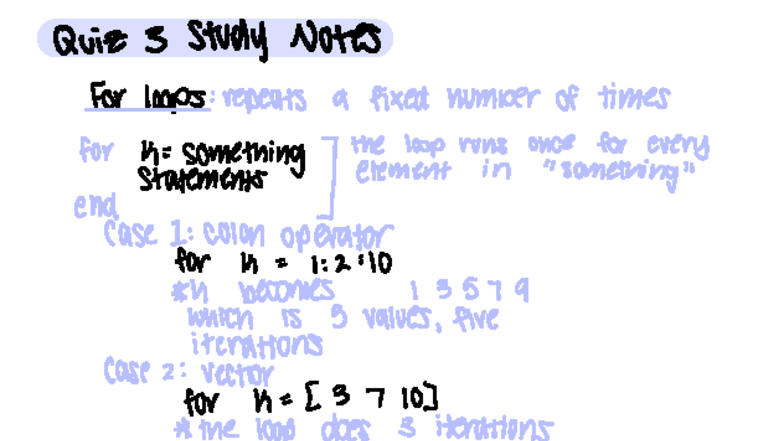 Quiz 3 Study Notes
For loops: repeats a fixed number of times
for k = something
statements
end
the loop runs once for every
element in "something"
Case 1: colon operator
for k = 1:2:10
*k becomes 1 3 5 7 9
which is 5 values, five
iterations
Case 2: vector
for k = [ 3 7 10]
*the loop does 3 iterations